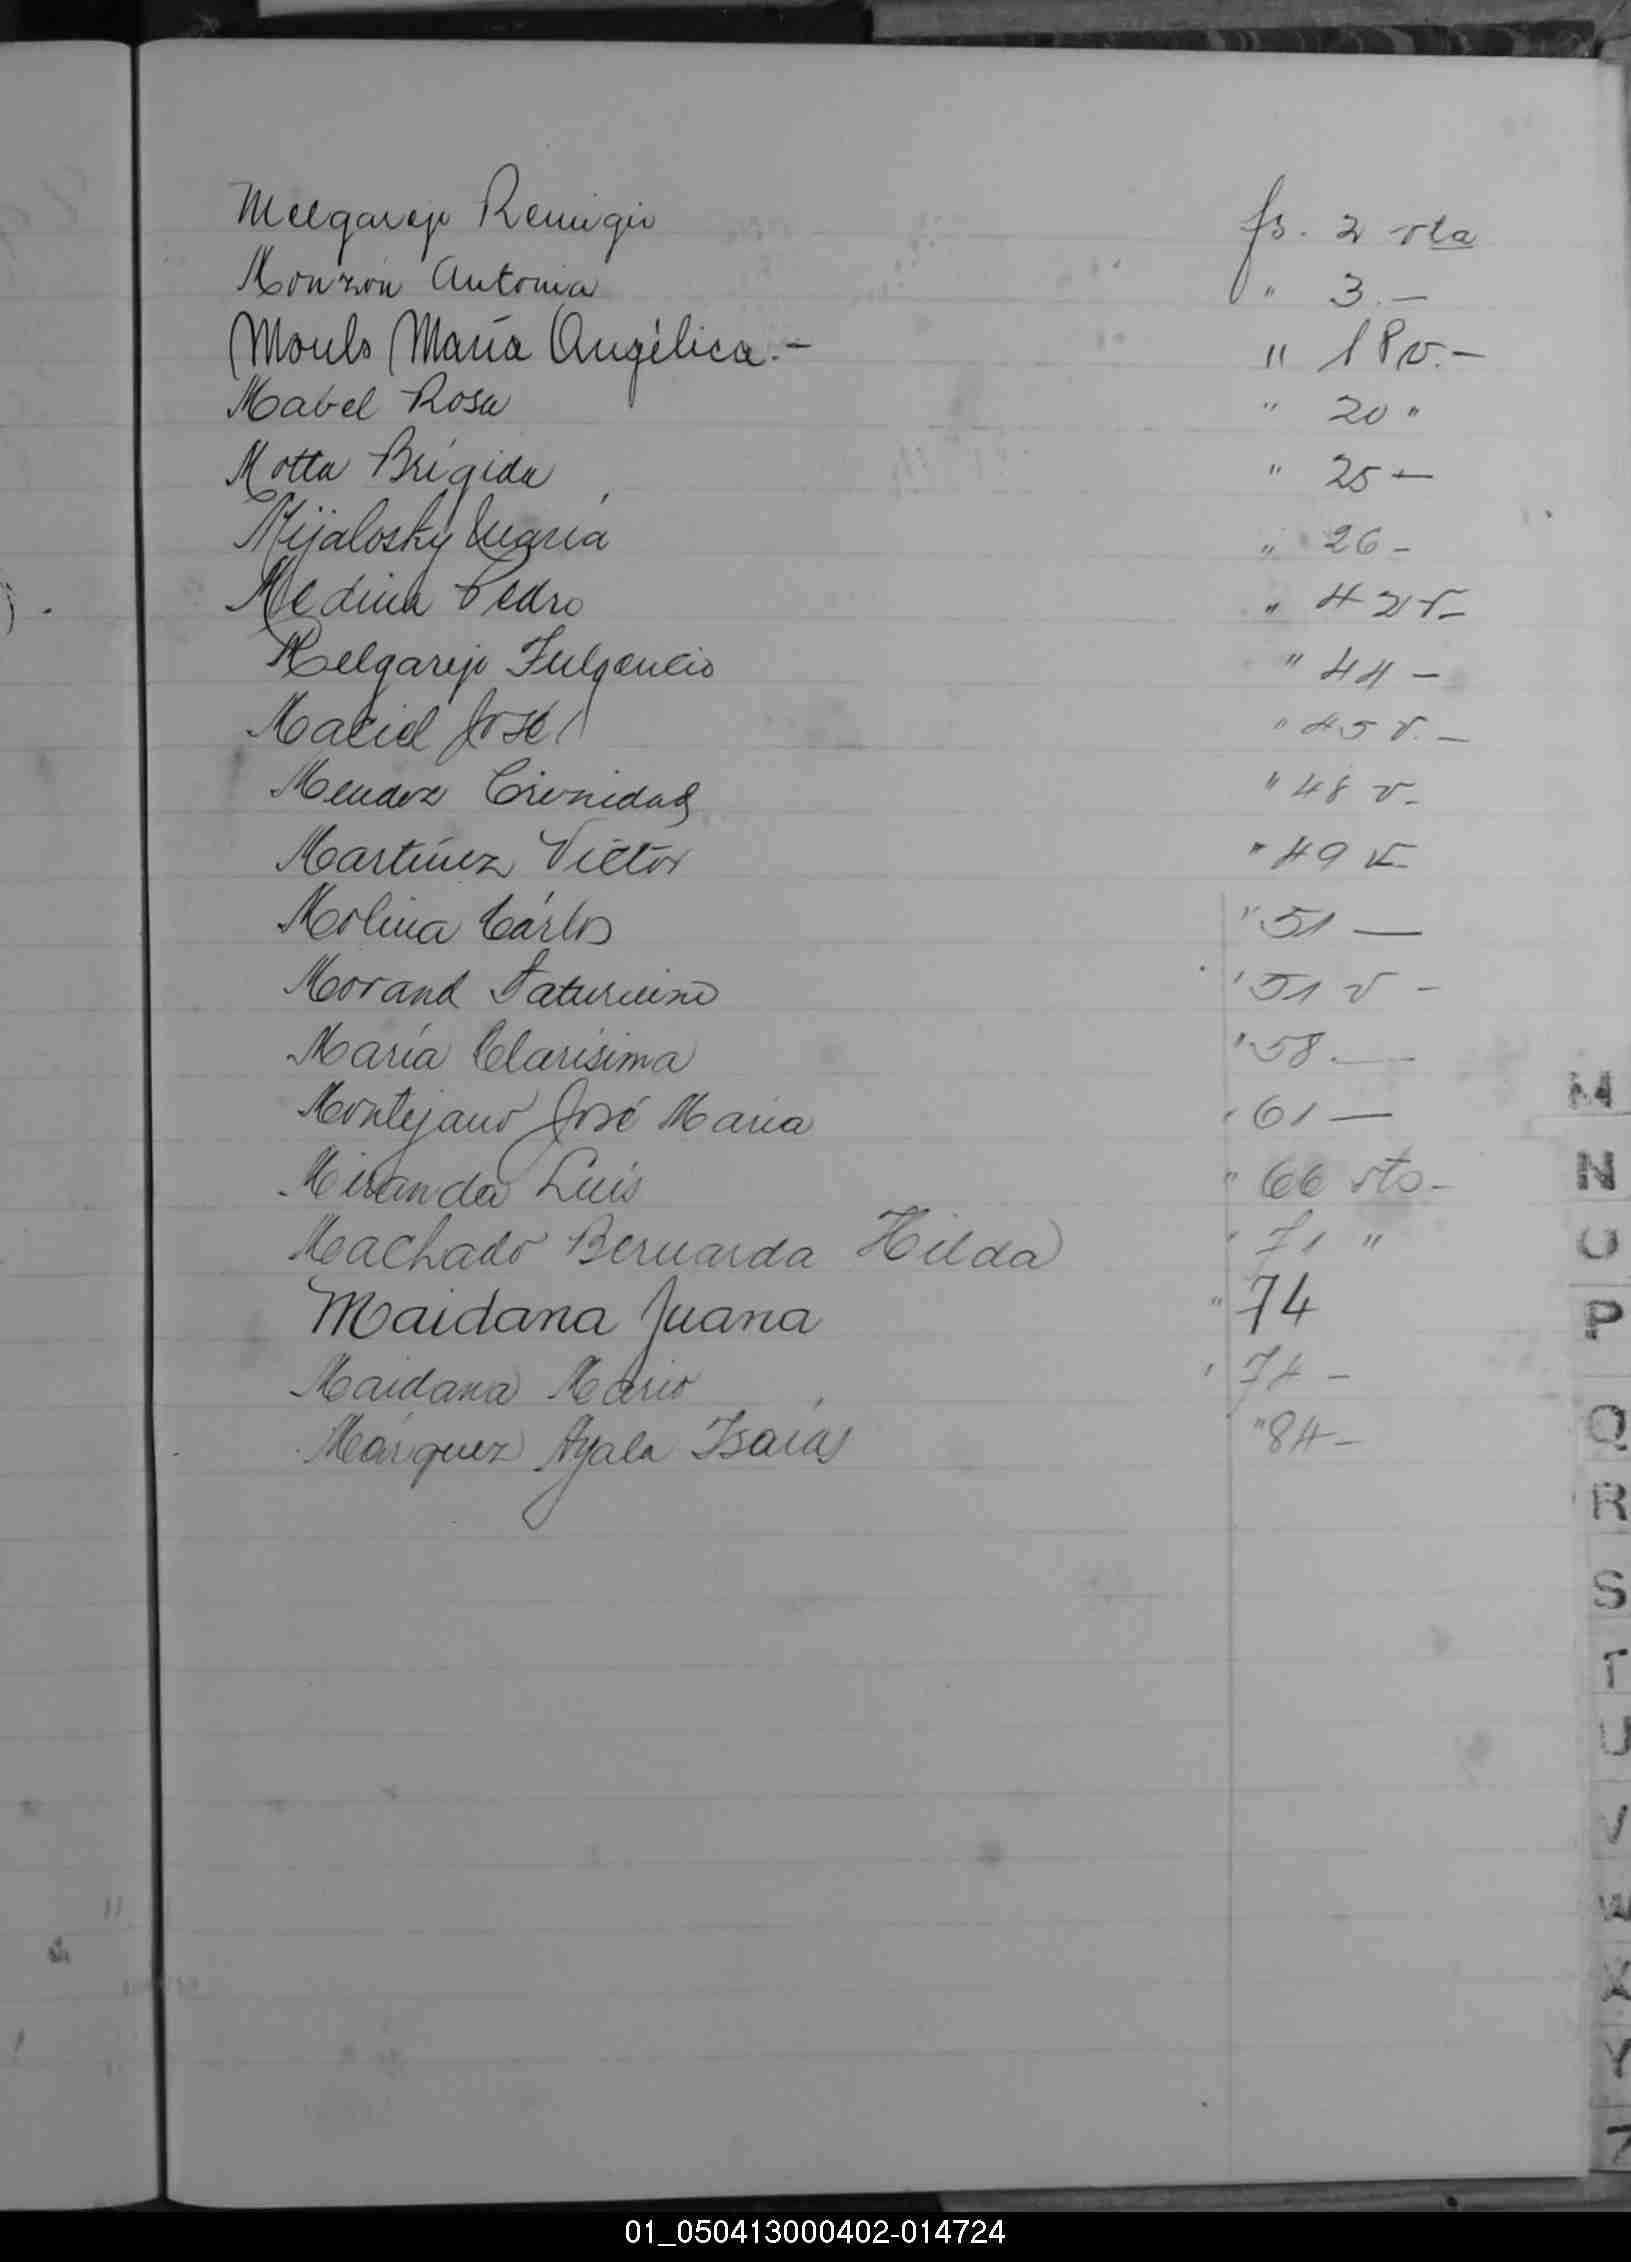 Melgarejo Remigio fs. 2 vta
Monzón Antonia " 3.-
Mouls María Angélica.- " 18v.-
Mabel Rosa " 20 "
Motta Brígida " 25 -
Mijalosky María " 26 -
Medina Pedro " 42 v-
Melgarejo Fulgencio " 44 -
Maciel José " 45 v.-
Mendez Trinidad " 48 v-
Martínez Víctor " 49 v-
Molina Cárlos " 51 -
Morand Saturnino " 51 v -
María Clarisima " 58.-
Montejano José María " 61 -
Miranda Luis " 66 vto-
Machado Bernarda Hilda " 71 "
Maidana Juana " 74
Maidana Mario " 74 -
Márquez Ayala Isaías " 84-
M
N
O
P
Q
R
S
T
U
V
W
X
Y
Z
01_050413000402-014724